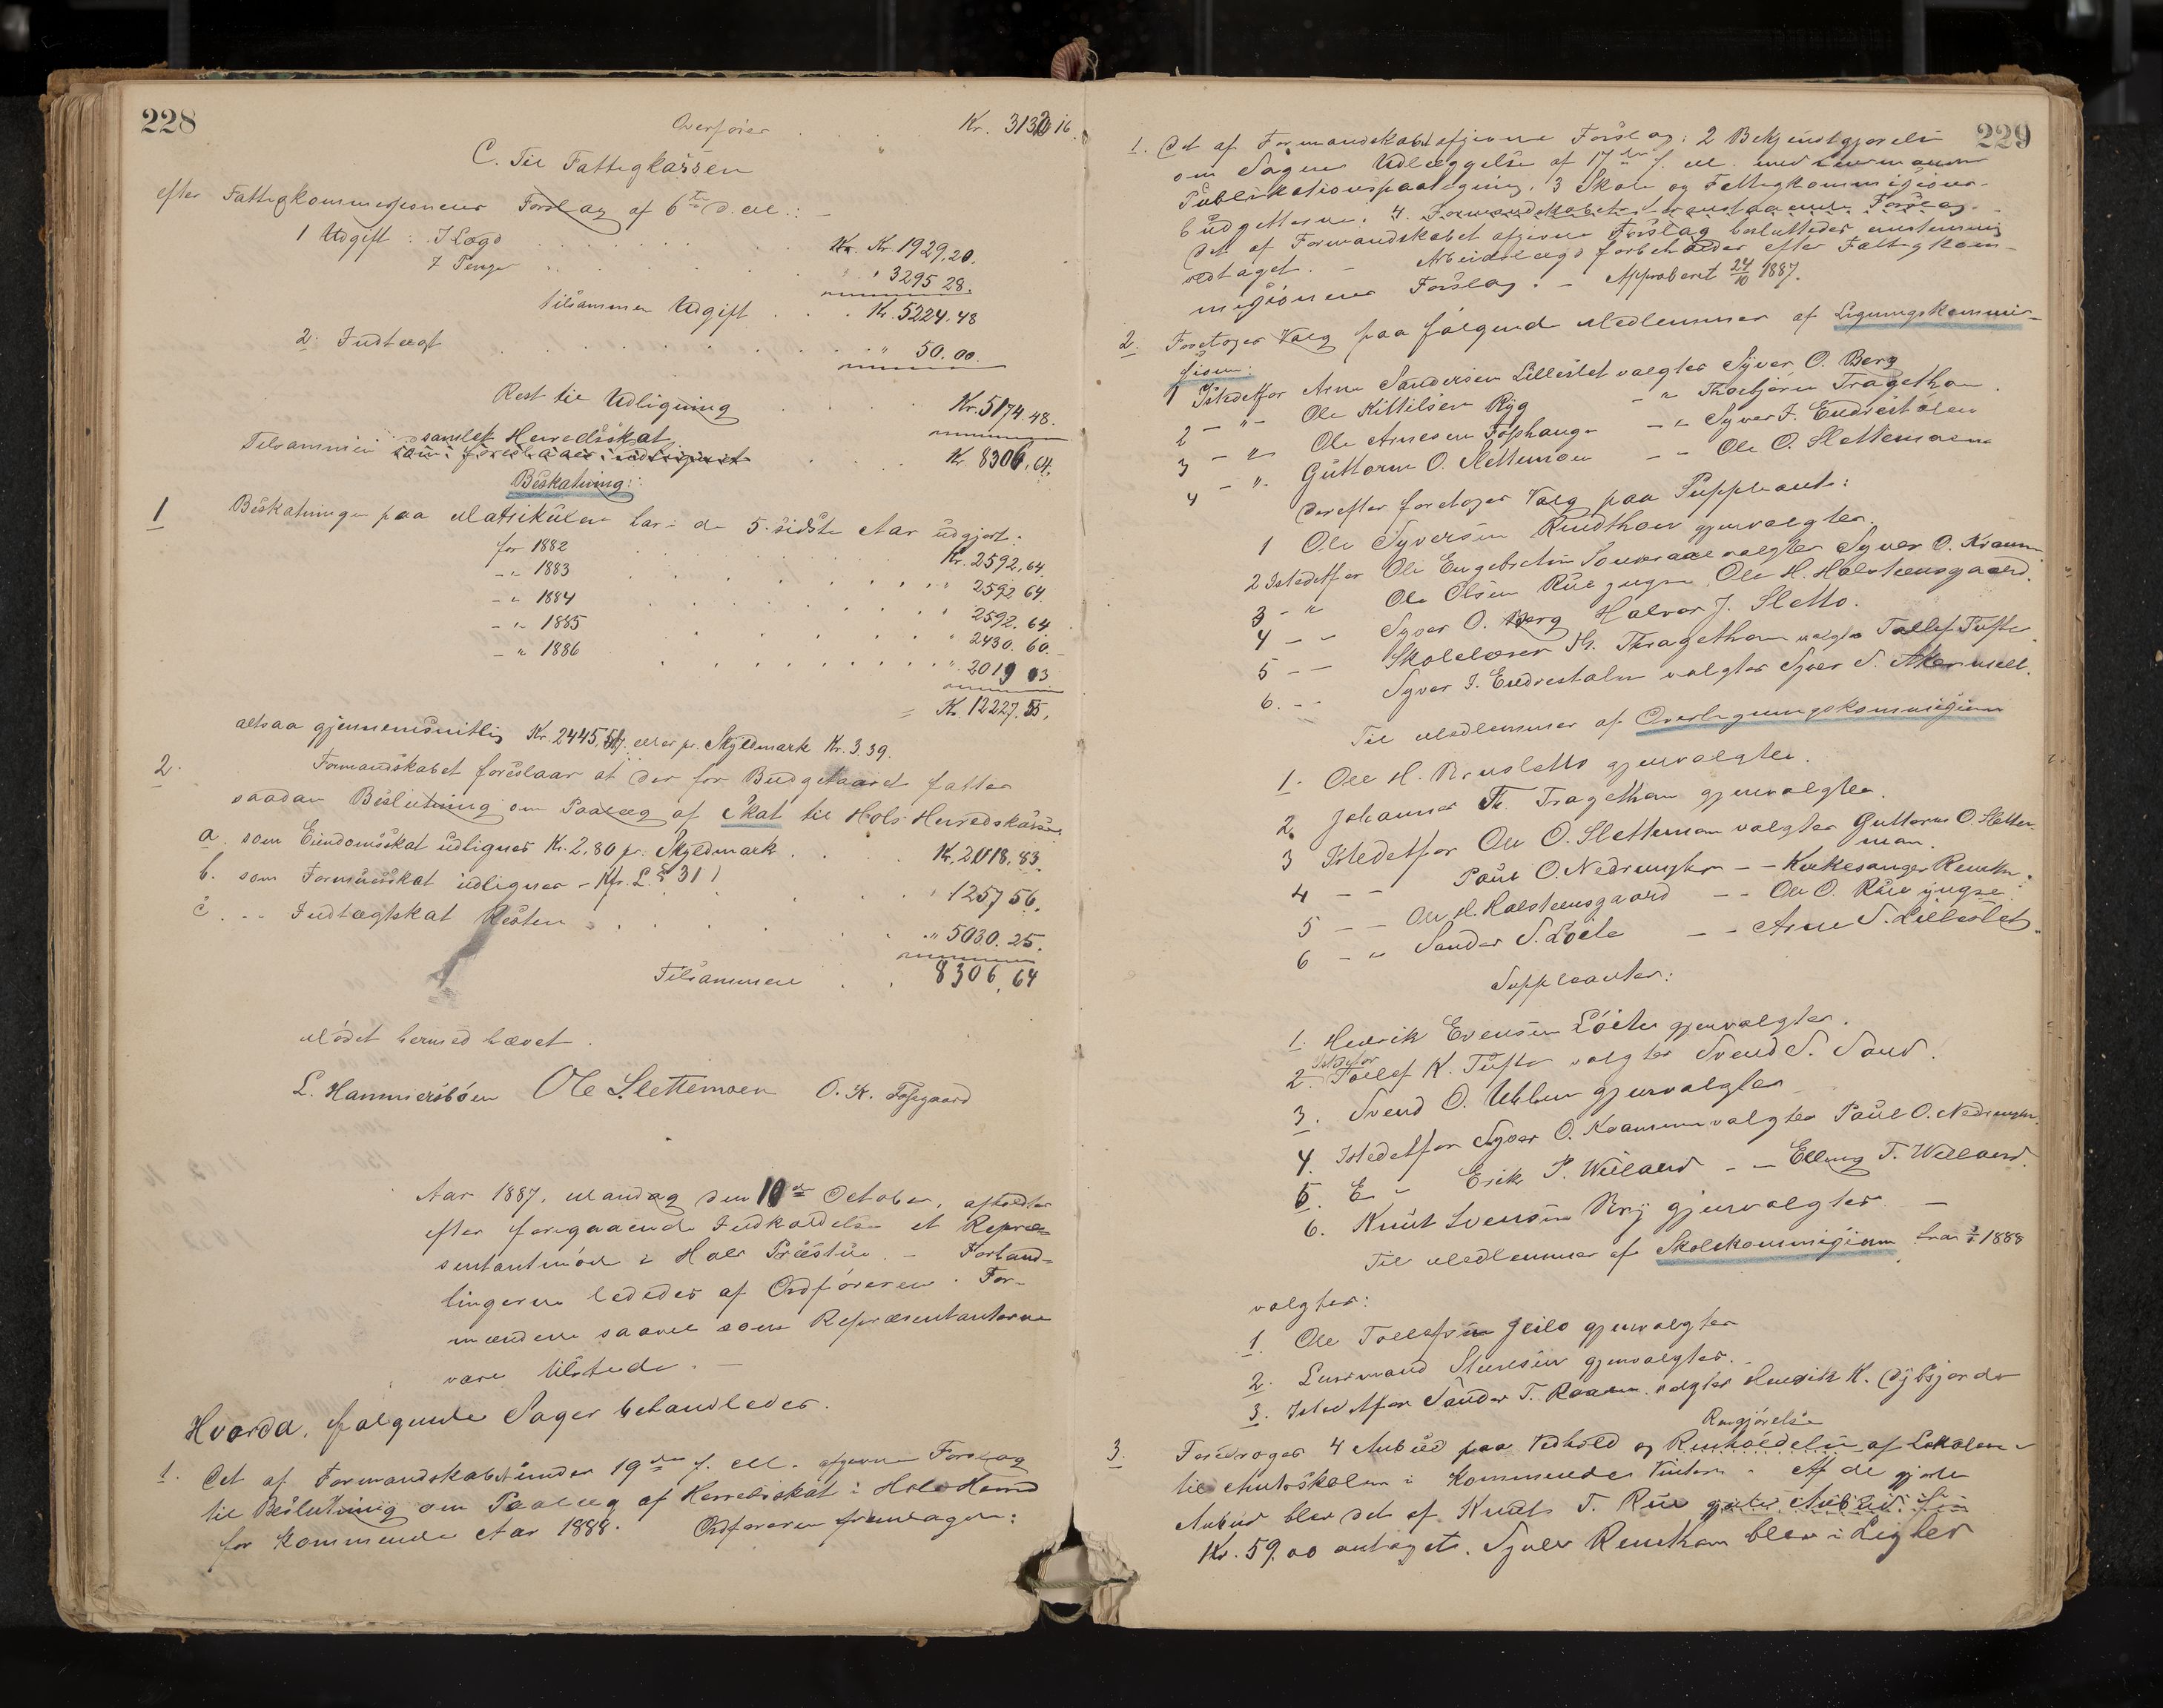 228
Overføres . . . . Kr. 3132,16.
C. Til Fattigkassen
efter Fattigkommissionens Forslag af 6te d. M.: –
1 Udgift: I Lægd . . . . . Kr. 1929,20.
I Penge . . . . . " 3295 28.
tilsammen Udgift . . . Kr. 5224,48
2. Indtægt . . . . . " 50.00.
Rest til Udligning . . . . Kr. 5174.48.
Tilsammen samlet Herredsskat . . . Kr. 8306,64.
Beskatning:
1 Beskatningen paa Matrikülen har i de 5 sidste Aar üdgjort:
for 1882 Kr. 2592,64.
–"– 1883 . . . . " 2592 64.
–"– 1884 . . . . 2592.64
–"– 1885 . . . . " 2430.60.–
–"– 1886 . . . . " 2019 03
= Kr. 12227.55.
altsaa gjennemsnitlig Kr. 2445,51, eller pr. Skyldmark Kr. 3.39.
2. Formandskabet foreslaar at der for Budgetaaret fattes
saadan Beslutning om Paalæg af Skat til Hols Herredskasse
a. som Eiendomsskat üdlignes Kr. 2,80 pr. Skyldmark . . . Kr. 2018,83.
b. som Formuesskat üdlignes – Kfr. L. § 31 ! . . . " 1257 56.
c. –"– Indtægtskat Resten . . . . " 5030.25.
Tilsammen . . 8306,64
Mødet hermed hævet.
L. Hammersbøen Ole Slettemoen O. K. Fossgaard
Aar 1887, Mandag den 10de October, afholdtes
efter foregaaende Indkaldelse et Repræ-
sentantmøde i Hols Præstüe. – Forhand-
lingerne lededes af Ordføreren. For-
mændene saavel som Repræsentanterne
vare tilstede. –
Hvorda, følgende Sager behandledes.
1. Det af Formandskabet ünder 19de f. M. afgivne Forslag
til Beslutning om Paalæg af Herredsskat i Hols Herred
for kommende Aar 1888. Ordføreren fremlagde:
229
1. Det af Formandskabet afgivne Forslag: 2 Bekjendtgjørelse
om Sagens Udlæggelse af 17de f. M. med Lensmandens
Publikationspaategning. 3 Skole og Fattigkommissions-
büdgetterne. 4. Formandskabets Forslag.
Det af Formandskabet afgivne Forslag besluttedes enstemmig
vedtaget. – Arbeidslægd forbeholdes efter Fattigkom-
missionens Forslag. – Approberet 24/10 1887.
2. Foretoges Valg paa følgende Medlemmer af Ligningskommis-
sionen:
1 Istedetfor Arne Sandersen Lilleslet valgtes Syver O. Berg
2 –"– Ole Kittilsen Ryg –"– Thorbjørn Tragethon.
3 –"– Ole Arnesen –"– Syver J. Endrestølen
4 –"– Guttorm O. Slettemoen –"– Ole O. Slettemoen
Derefter foretoges Valg paa Suppleanter:
1 Ole Syversen gjenvalgtes.
2 Istedetfor Ole Engebretsen valgtes Syver O.
3 –"– Ole Olsen Rüe yngre Ole H. Holsteensgaard.
4 –"– Syver O. Berg Halvor J. Sletto.
5 –"– Skolelærer Th. Tragethon valgtes Tollef Tufte.
6. –"– Syver J. Endrestølen valgtes Syver S.
Til Medlemmer af Overligningskommissionen
1. Ole H. gjenvalgtes.
2. Johannes Th. Tragethon gjenvalgtes.
3 Istedetfor Ole O. Slettemoen valgtes Guttorm O. Slette-
moen.
4 –"– Paul O. –"– Kirkesanger
5 –"– Ole H. Holsteensgaard –"– Ole O. Rüe yngre.
6 –"– Sander S. –"– Arne S. Lilleslet.
Suppleanter:
1. Henrik Evensen gjenvalgtes.
2. Istedetfor Tollef K. Tufte valgtes Svend S. Sand.
3. Svend O. gjenvalgtes
4. Istedetfor Syver O. valgtes Paul O.
5. –"– Erik P. –"– Elling T.
6. Knut Svensen Ryg gjenvalgtes –
Til Medlemmer af Skolekommissionen fra 1/1 1888
valgtes:
1. Ole Tollefsen Geilo gjenvalgtes
2. Lensmand gjenvalgtes.
3. Istedetfor Sander T. valgtes Henrik K.
Rengjørelse
3. Foredroges 4 Anbud paa Vedhold og Renholdelse af Lokalerne
til Amtsskolen i kommende Vinter. Af de gjorte
Anbud blev det af Knut T. Rüe
Kr. 59,00 antaget. blev i Lighed